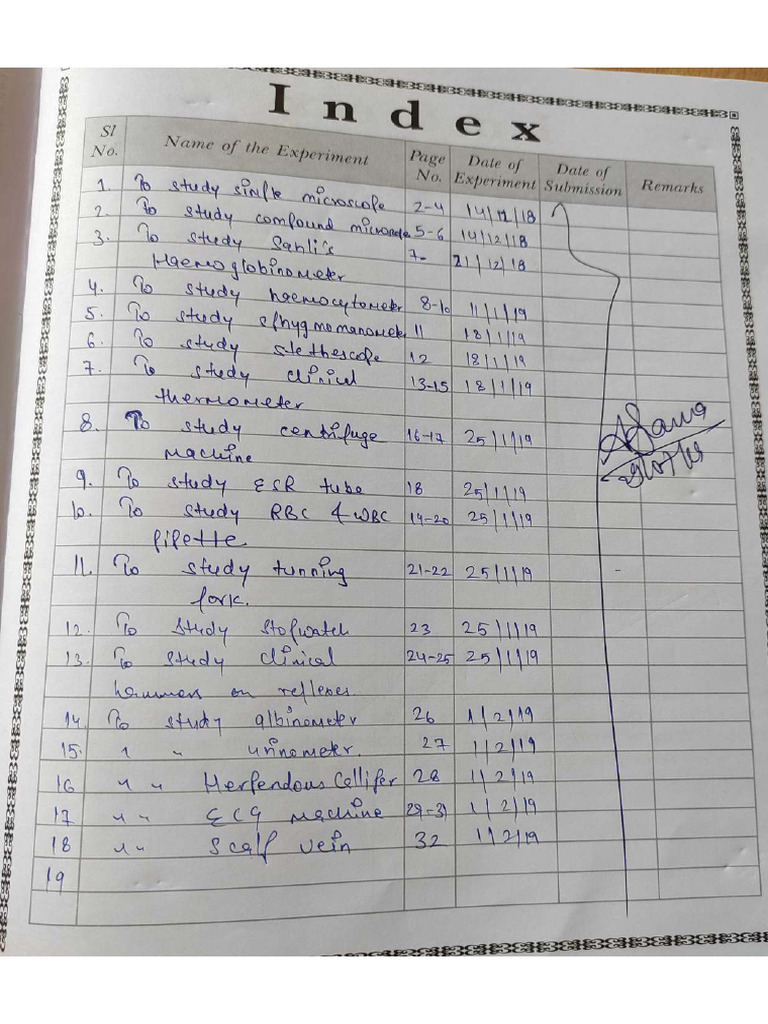 Index
Sl No. Name of the Experiment Page No. Date of Experiment Date of Submission Remarks
1. To study simple microscope 2-4 14/12/18
2. To study compound 5-6 14/12/18
3. To study Sahli's 7- 21/12/18
Haemoglobinometer
4. To study haemocytometer 8-10 11/1/19
5. To study sphygmomanomete 11 18/1/19
6. To study stethescope 12 18/1/19
7. To study clinical 13-15 18/1/19
thermometer
8. To study centrifuge 16-17 25/1/19
Machine
9. To study ESR tube 18 25/1/19
10. To study RBC & WBC 19-20 25/1/19
pipette
11. To study tunning 21-22 25/1/19
fork.
12. To study stopwatch 23 25/1/19
13. To study clinical 24-25 25/1/19
hammers on reflexes
14. To study albinometer 26 1/2/19
15. " " urinometer 27 1/2/19
16 " " Herpendous Calliper 28 1/2/19
17 " " ECG Machine 29-31 1/2/19
18 " " Scalp vein 32 1/2/19
19